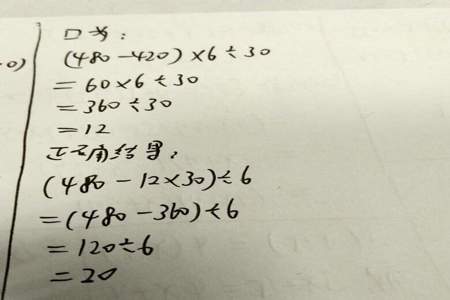 口为:
(480-420)×6÷30
=60×6÷30
=360÷30
=12
正确结果:
(480-12×30)÷6
=(480-360)÷6
=120÷6
=20